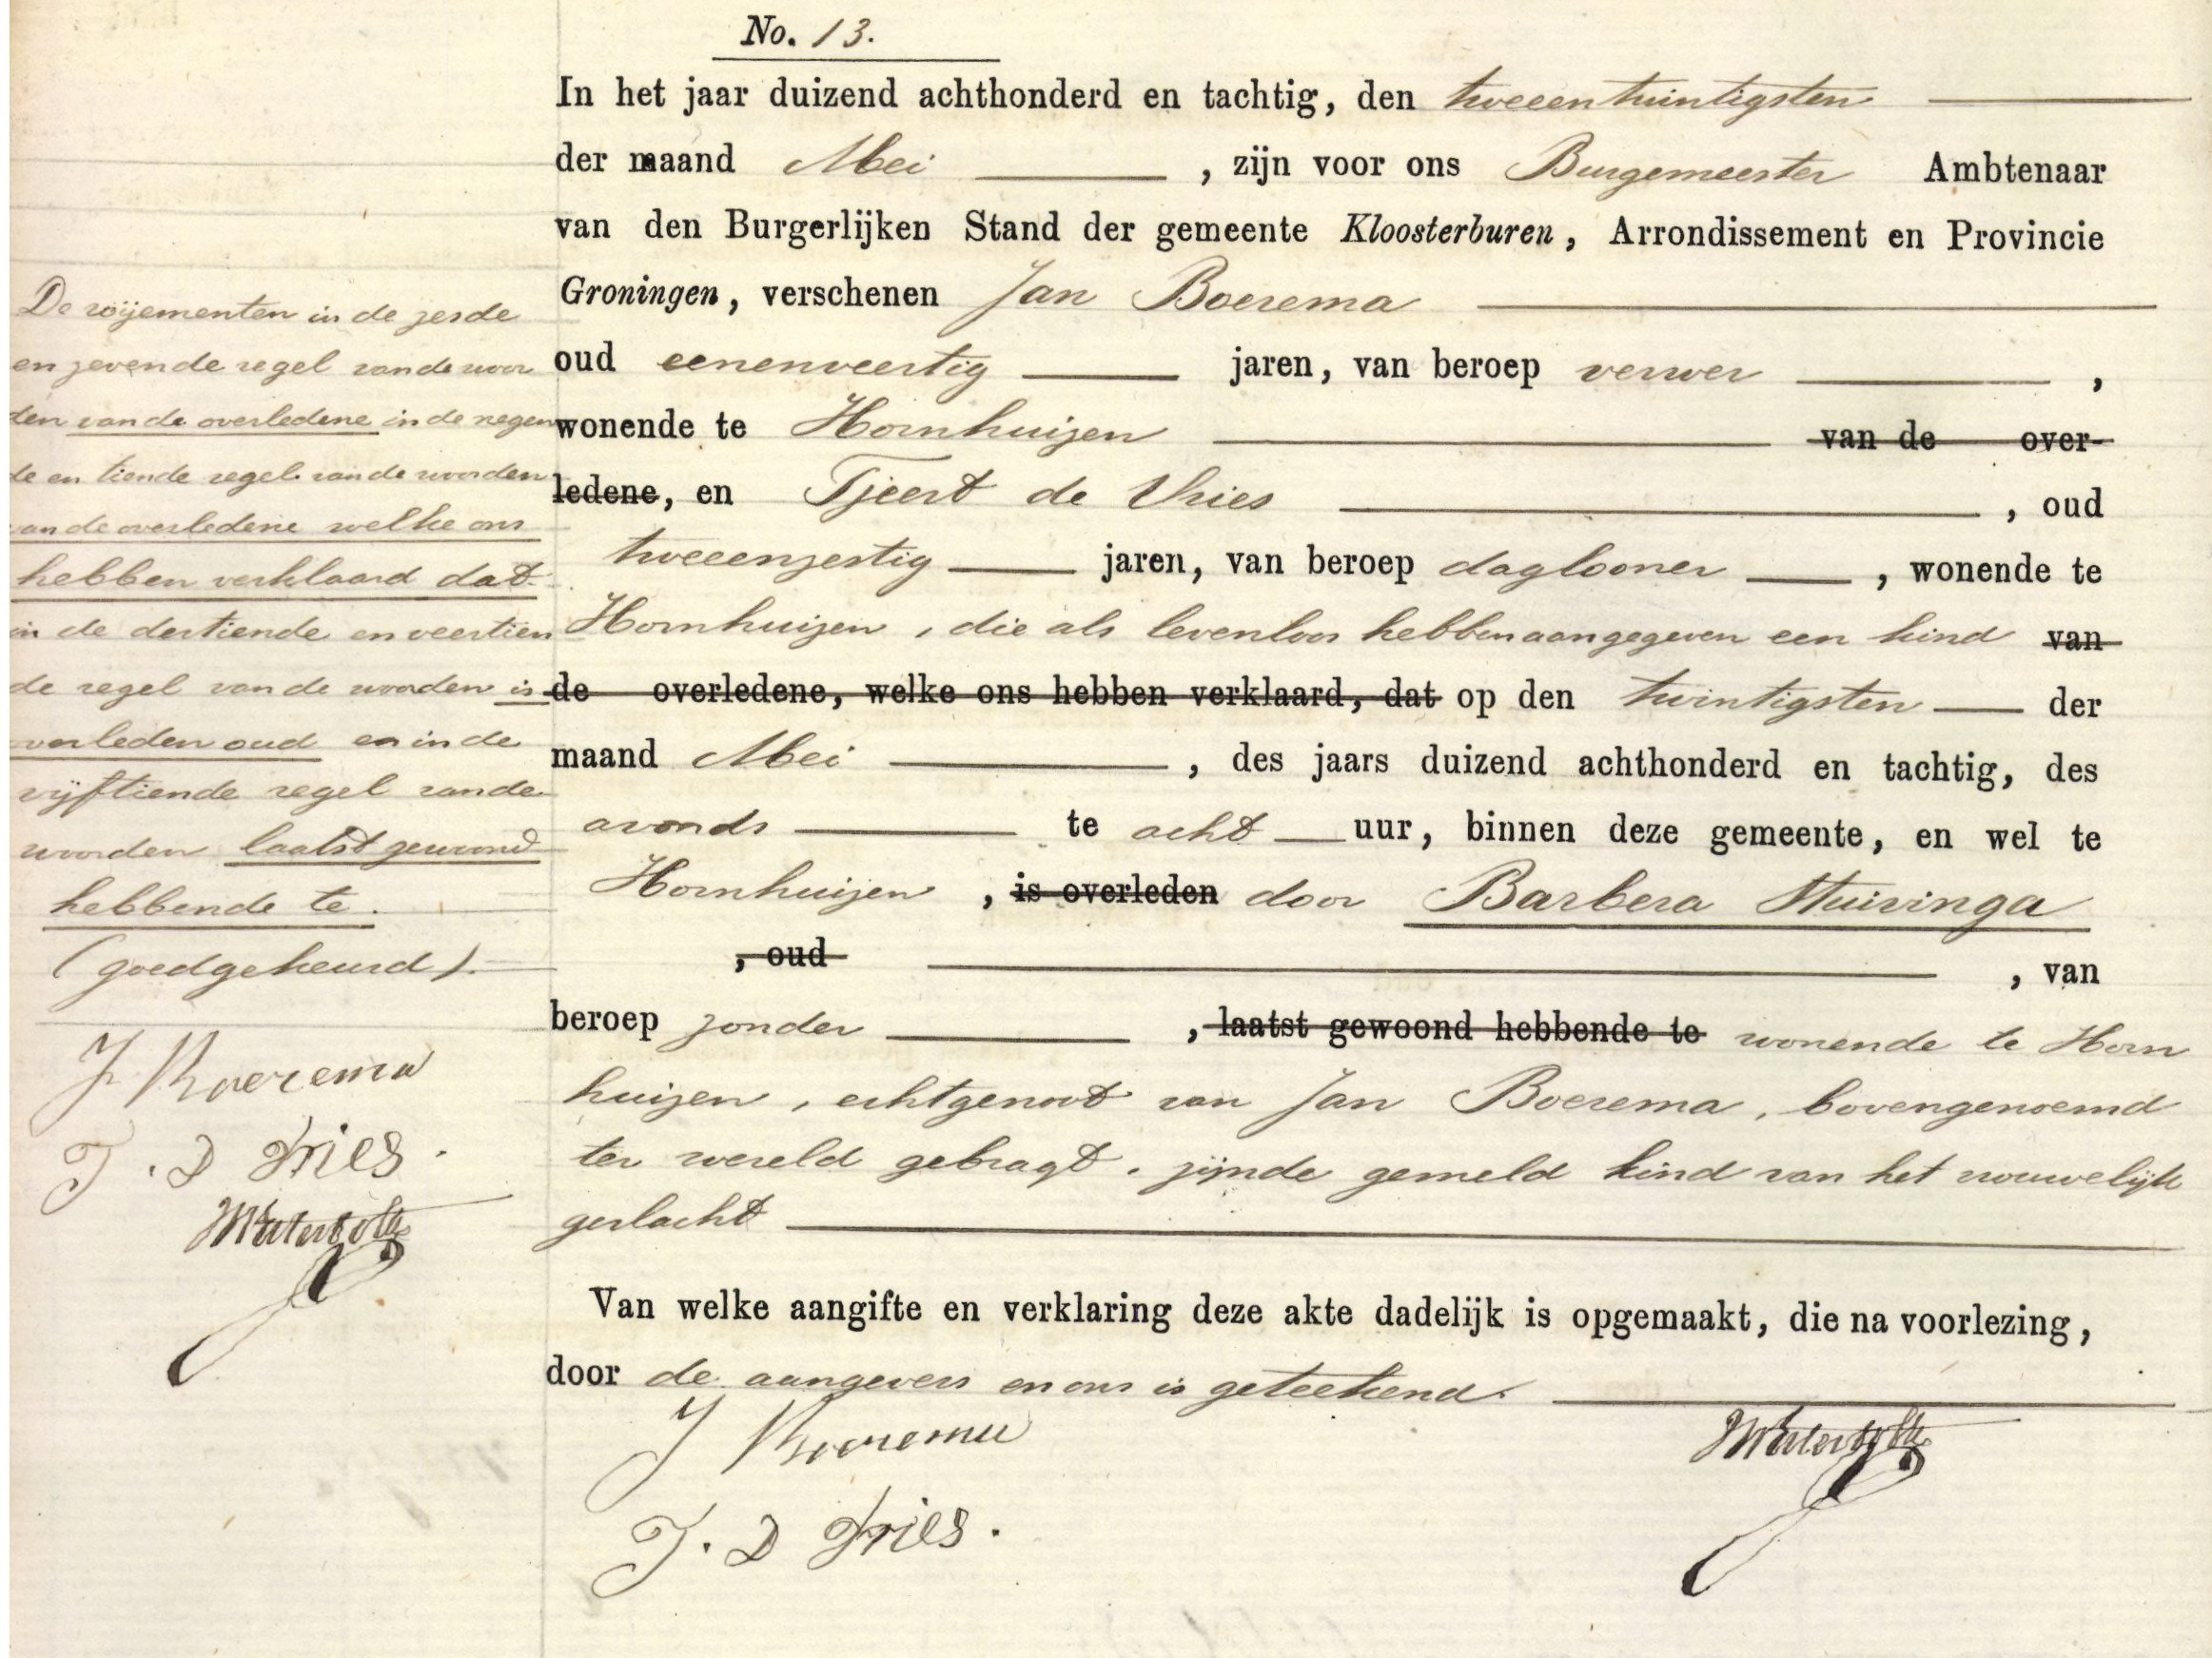 No. 13.
In het jaar duizend achthonderd en tachtig, den tweeentwintigsten
der maand Mei, zijn voor ons Burgemeester Ambtenaar
van den Burgerlijken Stand der gemeente Kloosterburen, Arrondissement en Provincie
Groningen, verschenen Jan Boerema
oud eenenveertig jaren, van beroep verwer,
wonende te Hornhuizen van de over-
ledene, en Tjeert de Vries, oud
tweeenzestig jaren, van beroep daglooner, wonende te
Hornhuizen, die als levenloos hebben aangegeven een kind van
de overledene, welke ons hebben verklaard, dat op den twintigsten der
maand Mei, des jaars duizend achthonderd en tachtig, des
avonds te acht uur, binnen deze gemeente, en wel te
Hornhuizen, is overleden door Barbera Huizinga
, oud , van
beroep zonder, laatst gewoond hebbende te wonende te Horn
huizen, echtgenoot van Jan Boerema, bovengenoemd
ter wereld gebragt, zijnde gemeld kind van het vrouwelijk
geslacht
Van welke aangifte en verklaring deze akte dadelijk is opgemaakt, die na voorlezing,
door de aangevers en ons is geteekend.
J Boerema
T. D Vries.
De roijementen in de zesde
en zevende regel van de woor
den van de overledene in de negen
de en tiende regel van de woorden
van de overledene welke ons
hebben verklaard dat
in de dertiende en veertien
de regel van de woorden is
overleden oud en in de
vijftiende regel van de
woorden laatst gewoond
hebbende te.
(goedgekeurd).
J Boerema
T. D Vries.